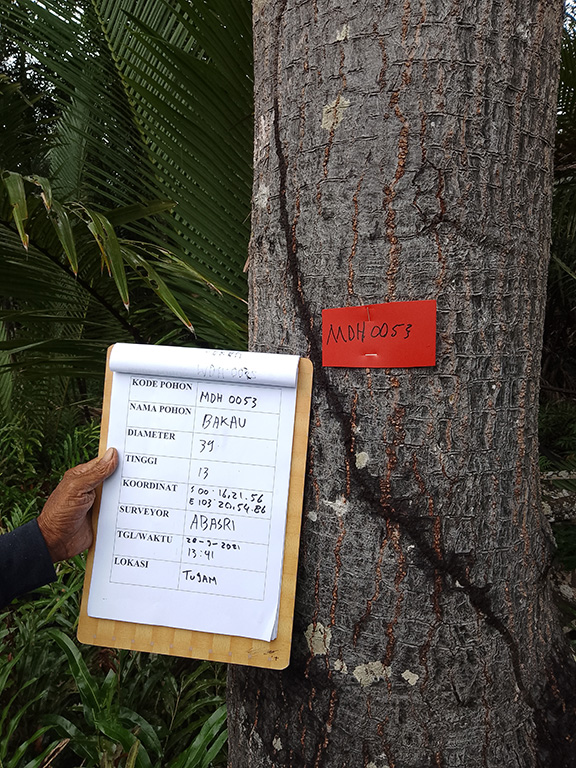 MDH 0053
KODE POHON MDH 0053
NAMA POHON BAKAU
DIAMETER 39
TINGGI 13
KOORDINAT S 00° 16, 21. 56
E 103° 20, 54. 86
SURVEYOR ABASRI
TGL/WAKTU 20-9-2021
13:41
LOKASI TUGAM